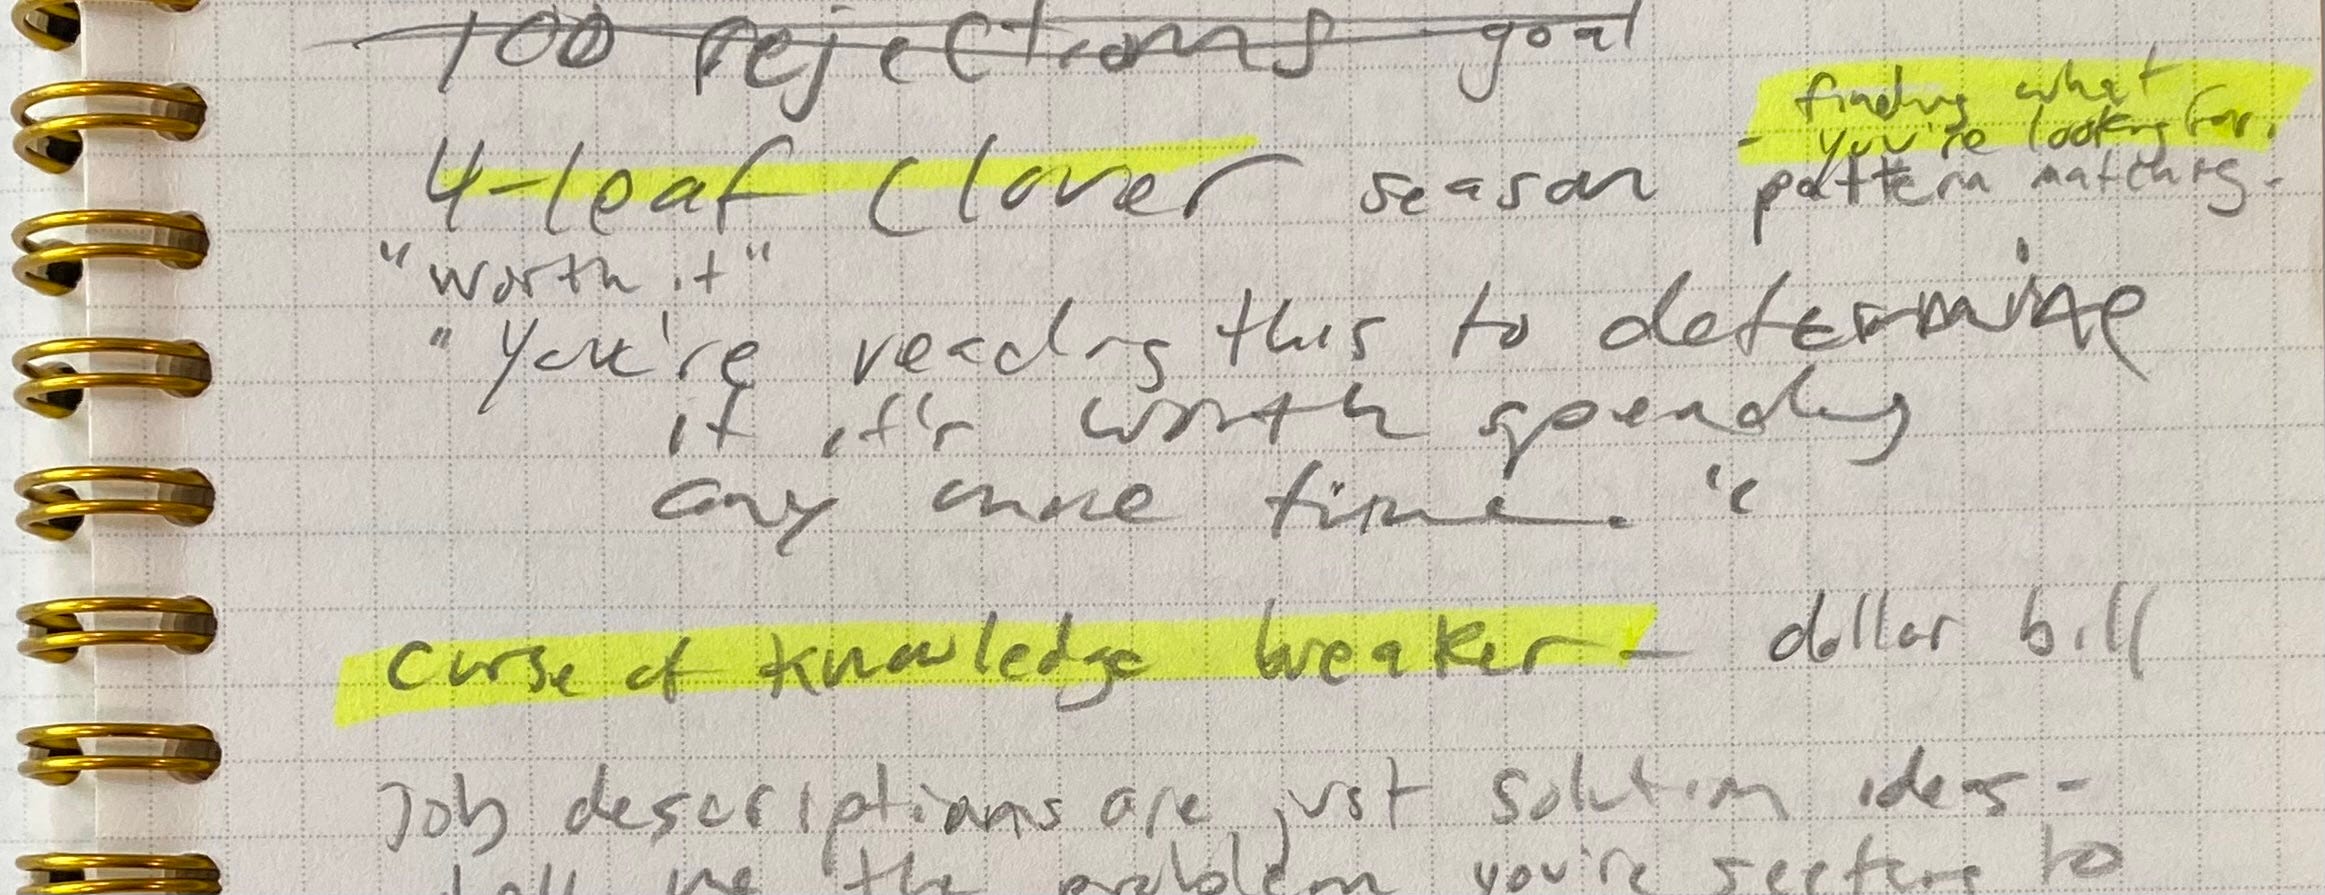 100 rejections goal
4-leaf clover season
- finding what
you're looking for.
pattern matching-
"worth it"
"You're reading this to determine
if it's worth spending
any more time."
curse of knowledge breaker - dollar bill
Job descriptions are just solution ideas -
tell me the problem you're seeking to